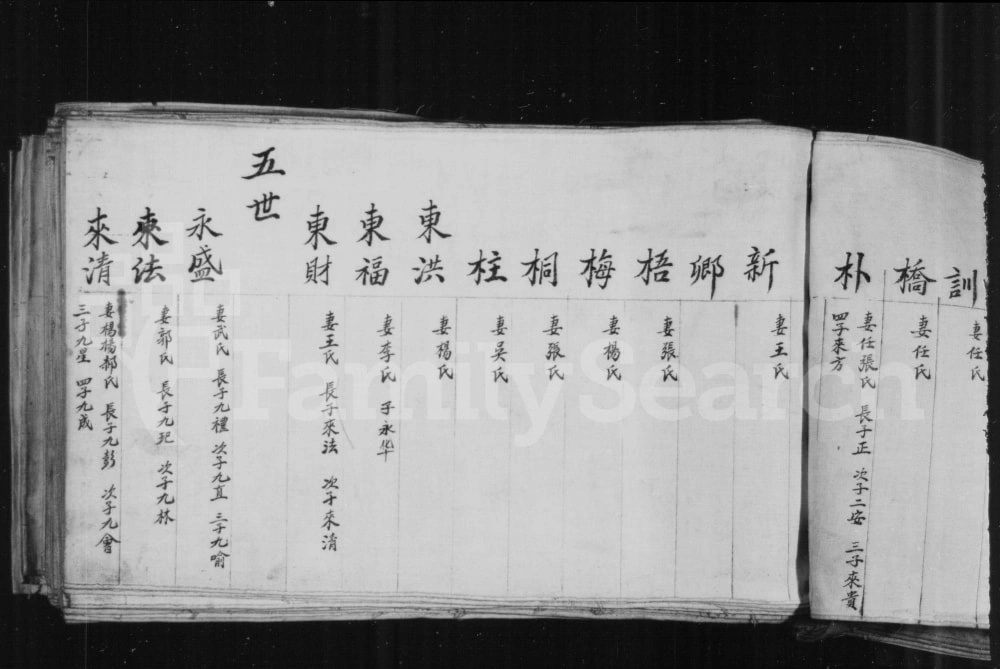 訓
妻任氏
橋
妻任氏
朴
妻任張氏 長子正 次子二安 三子來貴
四子來方
新
妻王氏
卿
梧
妻張氏
梅
妻楊氏
桐
妻張氏
柱
妻吳氏
東洪
妻楊氏
東福
妻李氏 子永华
東財
妻王氏 長子來法 次子來清
五世
永盛
妻武氏 長子九禮 次子九直 三子九喻
來法
妻郭氏 長子九玘 次子九林
來清
妻楊楊郝氏 長子九彭 次子九會
三子九星 四子九成
FamilySearch